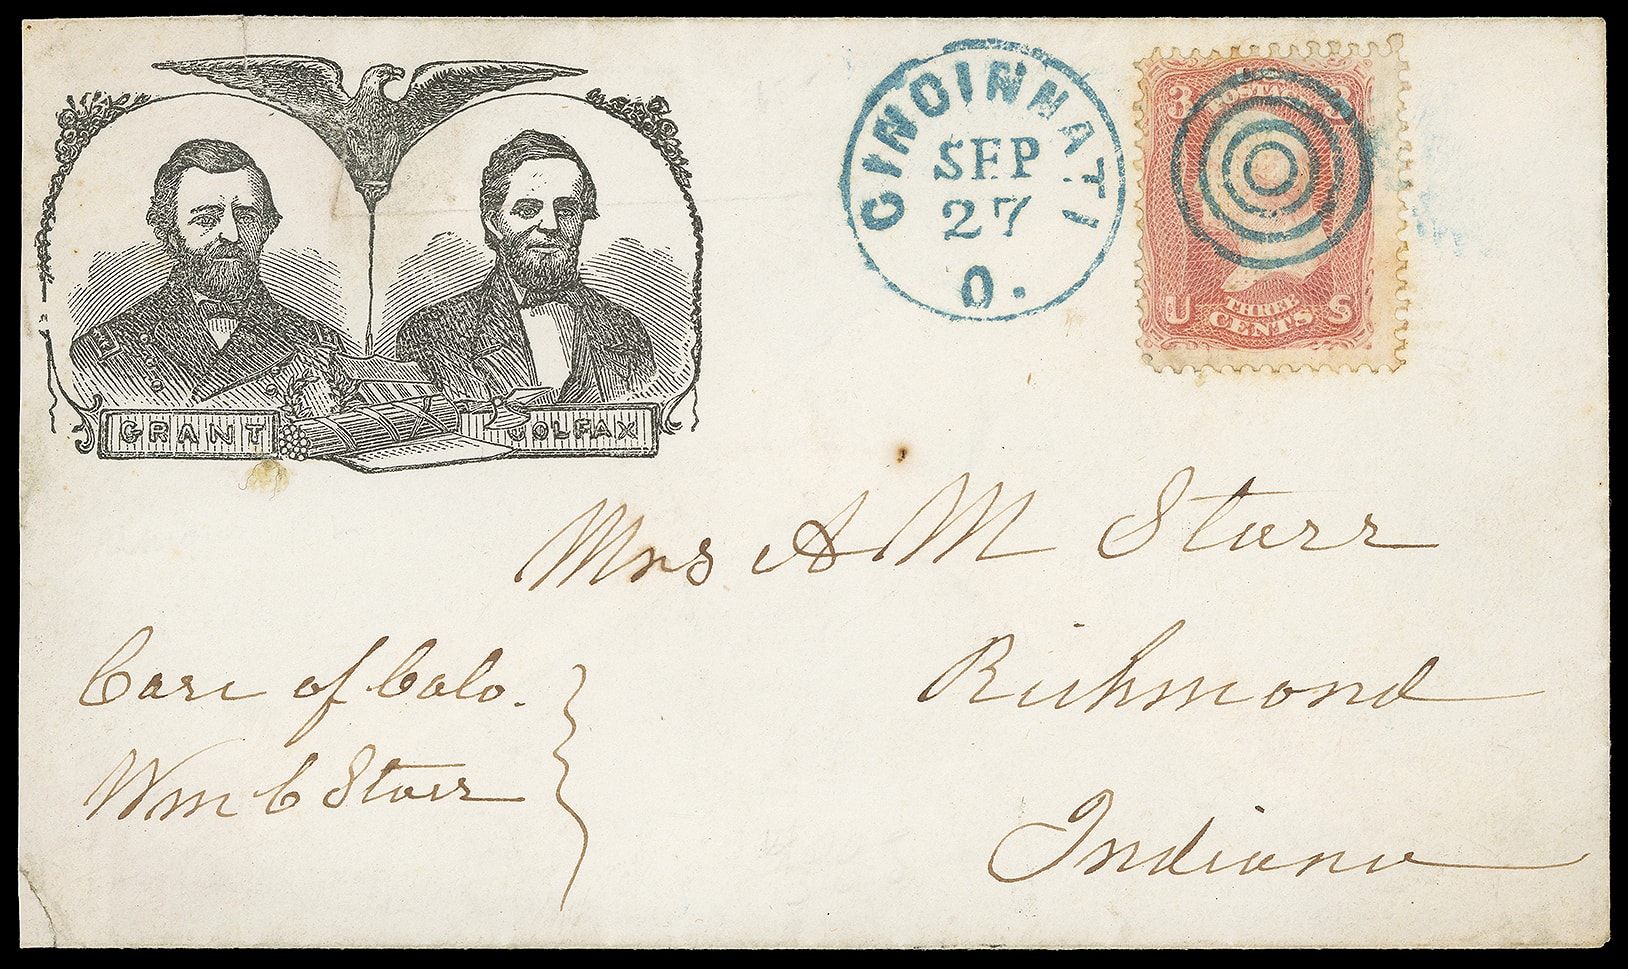 GRANT
COLFAX
CINCINNATI
SEP
27
O.
3 POSTAGE 3
U THREE S
CENTS
Mrs A M Starr
Richmond
Indiana
Care of Colo.
Wm C Starr